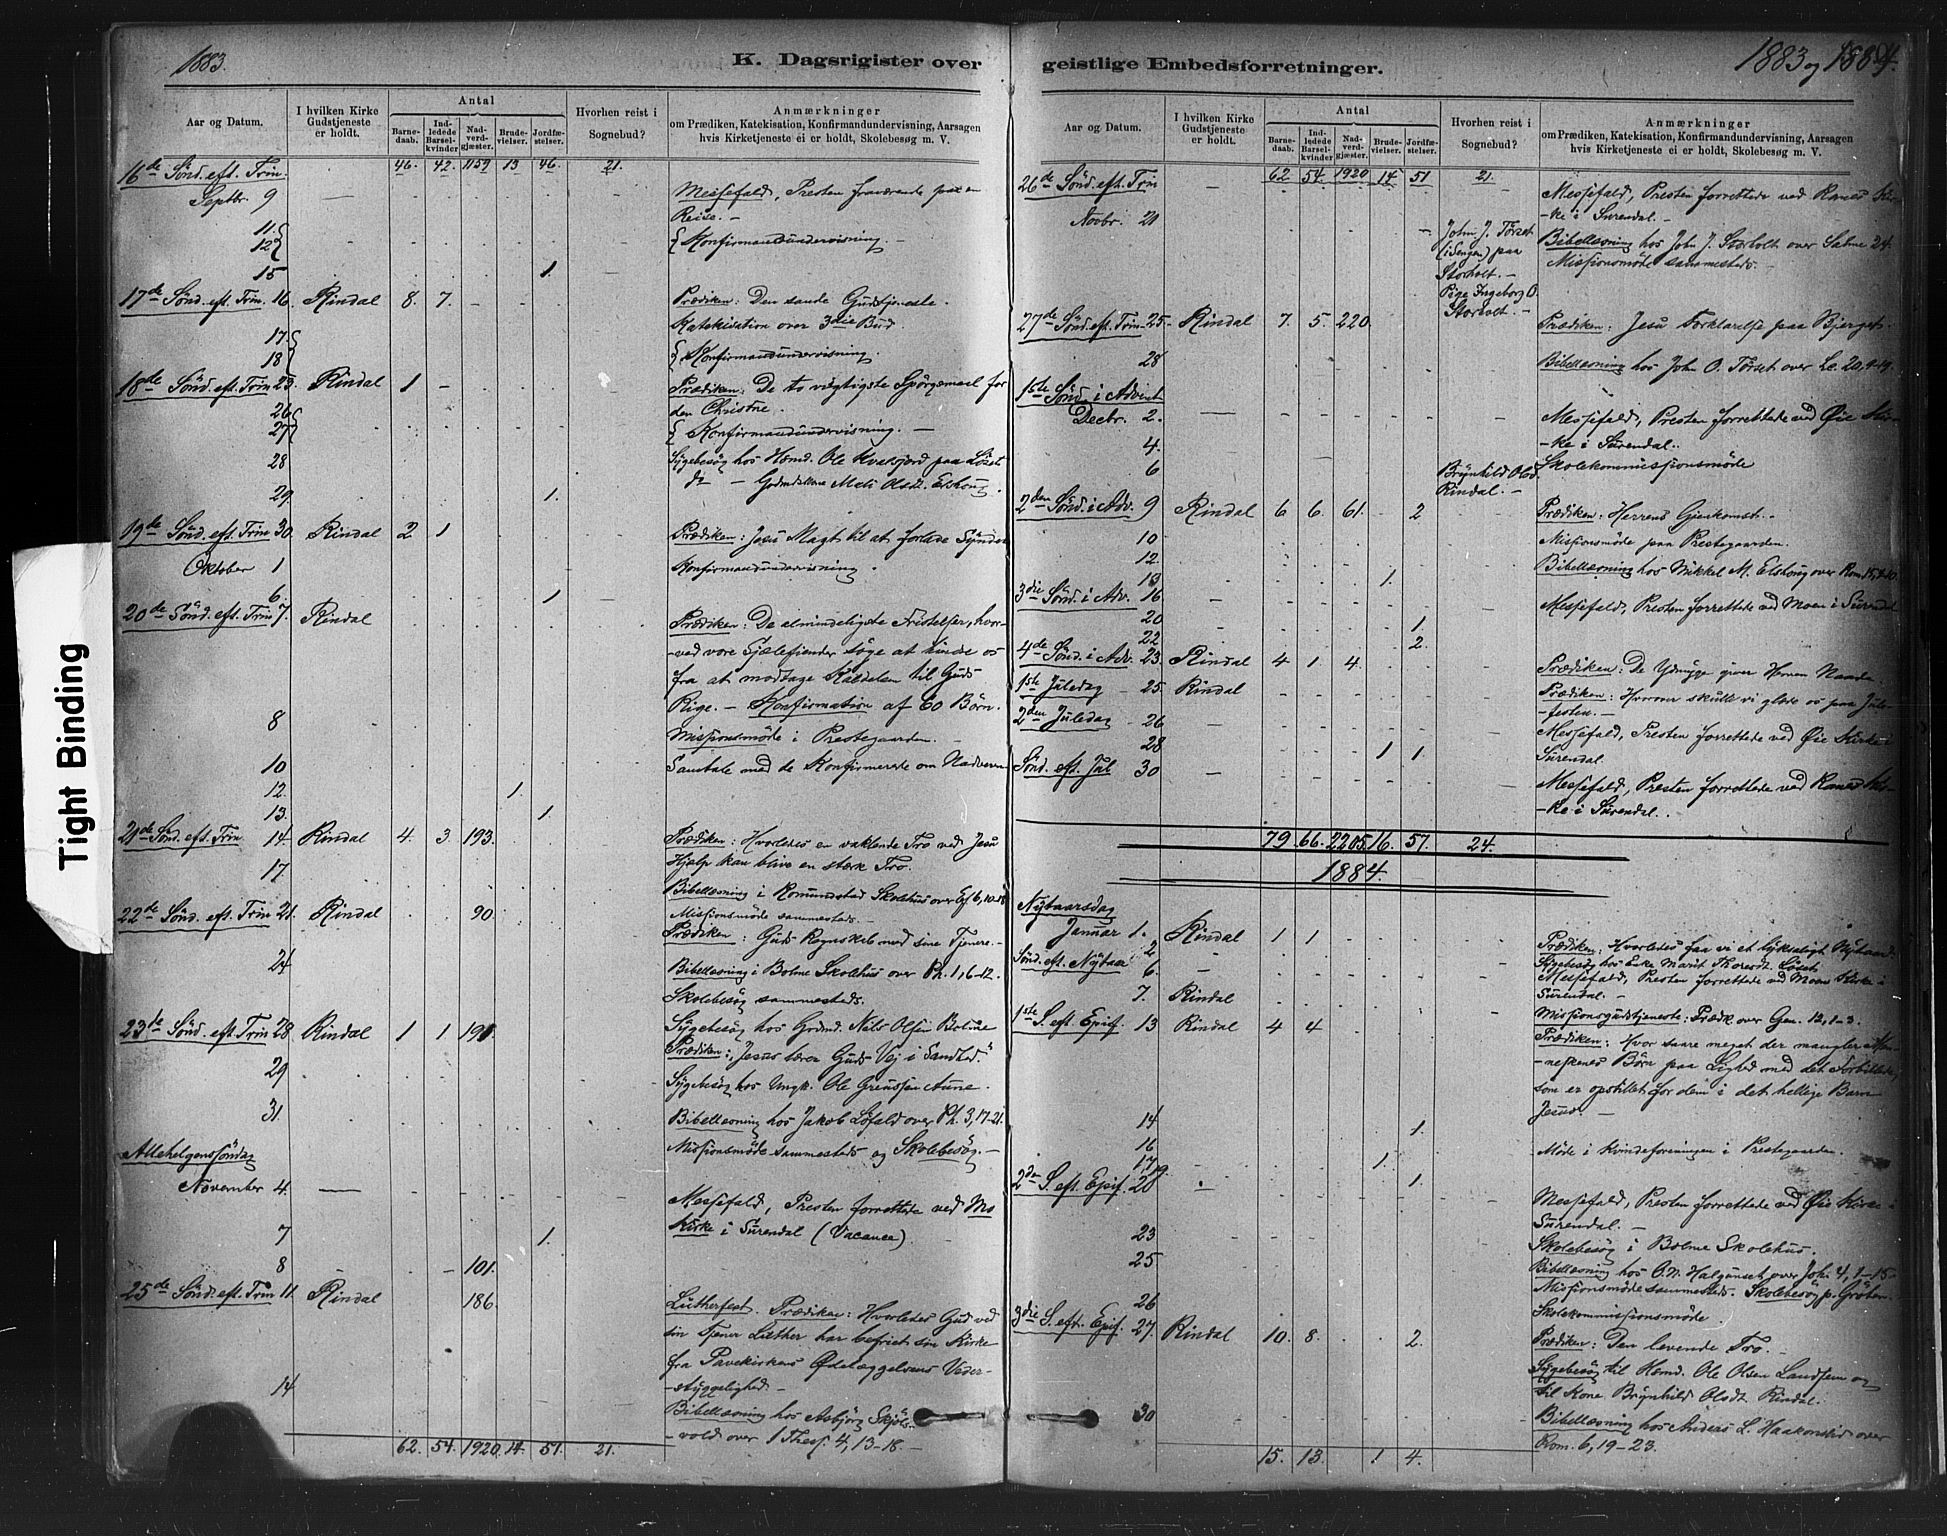 1883.
K. Dagsrigister over
Aar og Datum.
I hvilken Kirke Gudstjeneste er holdt.
Antal
Barne-daab.
Ind-ledede Barsel-kvinder
Nad-verd-gjæster.
Brude-vielser.
Jordfæ-stelser.
Hvorhen reist i Sognebud?
Anmærkninger
om Prædiken, Katekisation, Konfirmandundervisning, Aarsagen
hvis Kirketjeneste ei er holdt, Skolebesøg m. V.
16de Sönd. eft. Trin. 46. 42. 1159 13 46. 21.
Septbr. 9 — Messefald, Presten fraværende paa en
Reise. —
11.
12 { Konfirmandundervisning. —
15 1.
17de Sönd. eft. Trin. 16. Rindal 8. 7. Prædiken: Den sande Gudstjeneste.
Katekisation over 3die Bud.
17.
18 { Konfirmandundervisning.
18de Sönd. eft. Trin 23. Rindal 1 Prædiken: De to vigtigste Spörgsmaal for
den Christne.
26
27 { Konfirmandundervisning. —
28 Sygebesög hos Hsmd. Ole Kvalsjord paa Löset
do — Mali Olsdt. Elshoug.
29 1.
19de Sönd. eft. Trin 30. Rindal 2 1 Prædiken: Jesu Magt til at forlade Synder
Oktober 1 Konfirmandundervisning.
6. 1
20de Sönd. eft. Trin 7. Rindal Prædiken: De almindeligste Fristelser, hvor-
-ved vore Sjælefiender söge at hindre os
fra at modtage Kaldelsen til Guds
Rige. — Konfirmation af 60 Börn.
8 Missionsmöde i Prestegaarden.
10 Samtale med de Konfirmerede om Nadveren
12. 1.
13. 1
21de Sönd. eft. Trin 14. Rindal 4. 3. 193. Prædiken: Hvorledes en vaklende Tro ved Jesu
Hjælp kan blive en stærk Tro.
17. Bibellæsning i Romundstad Skolehus over Ef. 6, 10-18
Missionsmöde sammesteds. —
22de Sönd. eft. Trin 21. Rindal 90. Prædiken: Guds Regnskab med sine Tjenere.
24 Bibellæsning i Bolme Skolehus over Ph. 1, 6-12.
Skolebesög sammesteds.
Sygebesög hos Grdmd. Nils Olsen Bolme
23de Sönd. eft. Trin 28 Rindal 1 1 191. Prædiken: "Jesus lærer Guds Vej i Sandhed"
29 Sygebesög hos Ungk. Ole Aune.
31. Bibellæsning hos Jakob Löfald over Ph. 3, 17-21.
Missionsmöde sammesteds og Skolebesög. —
Allehelgenssöndag
November 4. — Messefald, Presten forrettede ved Mo
Kirke i Surendal (Vacance).
7 1.
8 101.
25de Sönd. eft. Trin 11. Rindal 186. Lutherfest. Prædiken: Hvorledes Gud ved
sin Tjener Luther har befriet sin Kirke
fra Pavekirkens Ødelæggelsens Veder-
-styggelighed —
14 Bibellæsning hos Asbjörg Skjöls-
-vold over 1 Thess. 4, 13-18. —
62. 54. 1920. 14. 51. 21.
geistlige Embedsforretninger.
1883 og 1884.
Aar og Datum.
I hvilken Kirke Gudstjeneste er holdt.
Antal
Barne-daab.
Ind-ledede Barsel-kvinder
Nad-verd-gjæster.
Brude-vielser.
Jordfæ-stelser.
Hvorhen reist i Sognebud?
Anmærkninger
om Prædiken, Katekisation, Konfirmandundervisning, Aarsagen
hvis Kirketjeneste ei er holdt, Skolebesøg m. V.
26de Sönd. eft. Trin — 62 54. 1920 14 51 21. Messefald, Presten forrettede ved Ranes Kir-
-ke i Surendal. —
Novbr. 21 John J. Törset (i Sengen) paa Storholt. — Bibellæsning hos John J. Storholt over Salme 24.
Missionsmöde sammesteds. —
Pige Ingeborg O. Storholt. —
27de Sönd. eft. Trin 25. Rindal 7. 5. 220. Prædiken: Jesu Forklarelse paa Bjerget.
28 Bibellæsning hos John O. Törset over Lc. 20, 9-19.
1ste Sönd. i Advent
Decbr. 2. — Messefald, Presten forrettede ved Øie Kir-
-ke i Surendal.
4. Skolekommissionsmöde
6 Brynhild Olsd. Rindal. —
2den Sönd. i Adv. 9 Rindal 6 6. 61. 2 Prædiken: Herrens Gjenkomst. —
10 Missionsmöde paa Prestegaarden.
12. Bibellæsning hos Mikkel M. Elshoug over Rom. 15, 4-10.
13 1.
3die Sönd. i Adv. 16 — Messefald, Presten forrettede ved Moen i Surendal
20 1.
22 2.
4de Sönd. i Adv. 23. Rindal 4 1 4. Prædiken: De Ydmyge giver Herren Naade.
1ste Juledag — 25. Rindal Prædiken: Hvorover skulle vi glæde os paa Jule-
-festen. —
2den Juledag — 26 — Messefald, Presten forrettede ved Øie Kirke i
Surendal.
28 1 1.
Sönd. eft. Jul 30 — Messefald, Presten forrettede ved Ranes Kir-
-ke i Surendal..
79. 66. 2205. 16. 57. 24.
1884.
Nytaarsdag
Januar 1. Rindal 1 1 Prædiken: Hvorledes faa vi et lyksaligt Nytaar?
2 Sygebesög hos Enke Marit Thoresdt. Löset
Sönd. eft. Nytaar 6. — Messefald, Presten forrettede ved Moen Kirke i
Surendal. —
7. Rindal Missionsgudstjeneste: Prædk over Gen. 12, 1-3.
1ste S. eft. Epif. 13 Rindal 4 4 Prædiken: Hvor saare meget der mangler Men-
-neskenes Börn paa Lighed med det Forbillede
som er opstillet for dem i det hellige Barn
Jesus —
14 1.
16 Möde i Kvindeforeningen i Prestegaarden.
17 1.
19. 1.
2den S. eft. Epif. 20 — Messefald, Presten forrettede ved Øie Kirke i
Surendal. —
23 Skolebesög i Bolme Skolehus.
25 Bibellæsning hos O. N. Halgunset over Joh. 4, 1-15.
Missionsmöde sammesteds. Skolebesög p. Gröten.
26 Skolekommissionsmöde.
3die S. eft. Epif. 27. Rindal 10. 8. 2. Prædiken: Den levende Tro. —
Sygebesög til Hsmd. Ole Olsen Landsem og
til Kone Brynhild Olsdt. Rindal.
30 Bibellæsning hos Anders L. Haakonstad over
Rom. 6, 19-23.
15. 13. 1 4.
Tight Binding